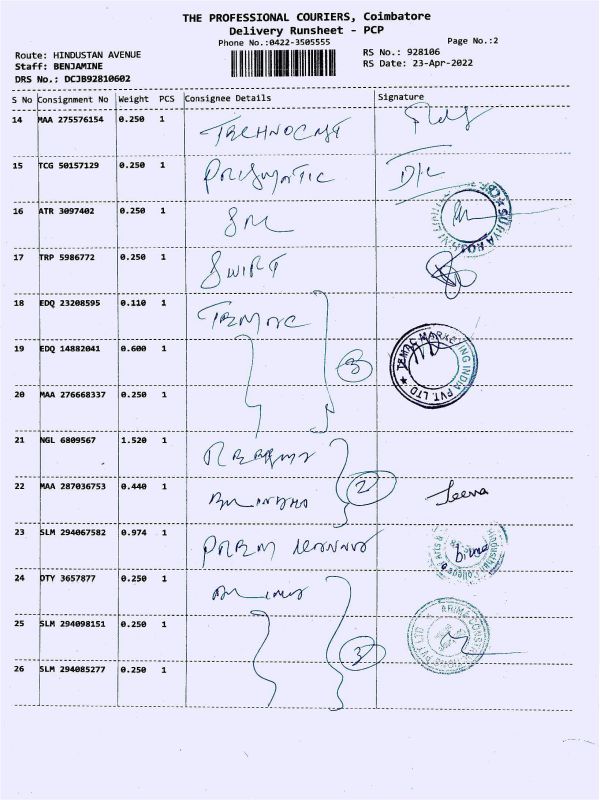 THE PROFESSIONAL COURIERS, Coimbatore
Delivery Runsheet - PCP
Phone No.:0422-3505555
Page No.:2
Route: HINDUSTAN AVENUE
RS No.: 928106
Staff: BENJAMINE
RS Date: 23-Apr-2022
DRS No.: DCJB92810602
S No Consignment No Weight PCS Consignee Details Signature
14 MAA 275576154 0.250 1 TECHNOCAST
15 TCG 50157129 0.250 1 PRISMATIC
16 ATR 3097402 0.250 1
17 TRP 5986772 0.250 1 SWIFT
18 EDQ 23208595 0.110 1 TEMAC
19 EDQ 14882041 0.600 1 3
TEMAC MARKETING INDIA PVT. LTD
20 MAA 276668337 0.250 1
21 NGL 6809567 1.520 1
22 MAA 287036753 0.440 1 2 Jeeva
23 SLM 294067582 0.974 1 PREM
24 DTY 3657877 0.250 1
25 SLM 294098151 0.250 1 3
26 SLM 294085277 0.250 1